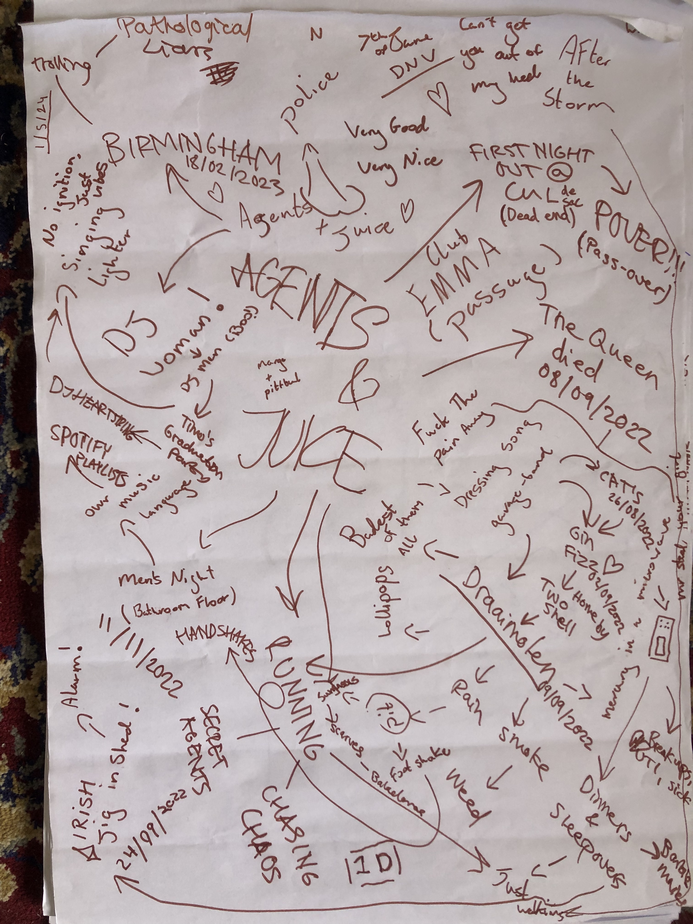 Pathological
Liars
N
7th of June
DNV
Can't get
you out of
my head
After
the
Storm
trolling
1/5/24
police
Very Good
Very Nice
BIRMINGHAM
18/02/2023
FIRST NIGHT
OUT @
CUL de
sac
(Dead end)
POVER!!!
(Pass-over)
No ignition.
Just
Singing vibes
lighter
Agents
+ Juice
Club
EMMA
(passage)
AGENTS
&
JUICE
Mango
+
pitbull
DJ
woman!
DJ man (Boo)
The Queen
died
08/09/2022
DJ HEARTSTRING
Tino's
Graduation
Party
SPOTIFY
PLAYLISTS
our music
language
Fuck The
Pain Away
Dressing Song
garage-band
Badest
of them
All
Lollipops
CATIS
26/08/2022
Gin
Fizz
02/09/2022
Home by
Two
Shell
mercury in a microwave
mr steal your girl
Draaimolen
Men's Night
(Bathroom Floor)
11/11/2022
HANDSHAKES
RUNNING
Sunglasses
Scenes
Balaclavas
foot shake
Rain
Smoke
Weed
Alarm!
IRISH
Jig in Shed!
SECRET
AGENTS
24/09/2022
CHASING
CHAOS
1D
Dinners
&
Sleepovers
Break ups
UTI, sick
Barbie
movie
Just
walking